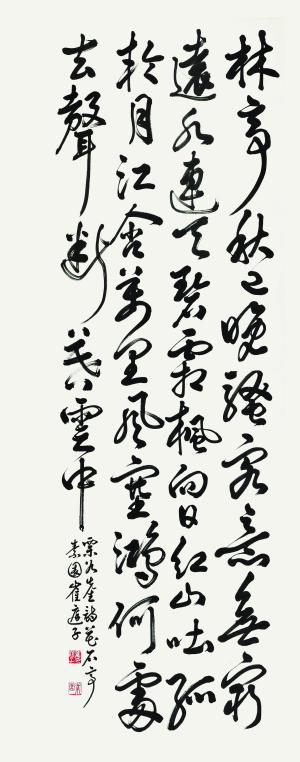 林亭秋已晚騷客意無窮
遠水連天碧霜楓向日紅山吐孤
輪月江含萬里風塞鴻何處
去聲斷暮雲中
栗谷詩花石亭
素園崔子